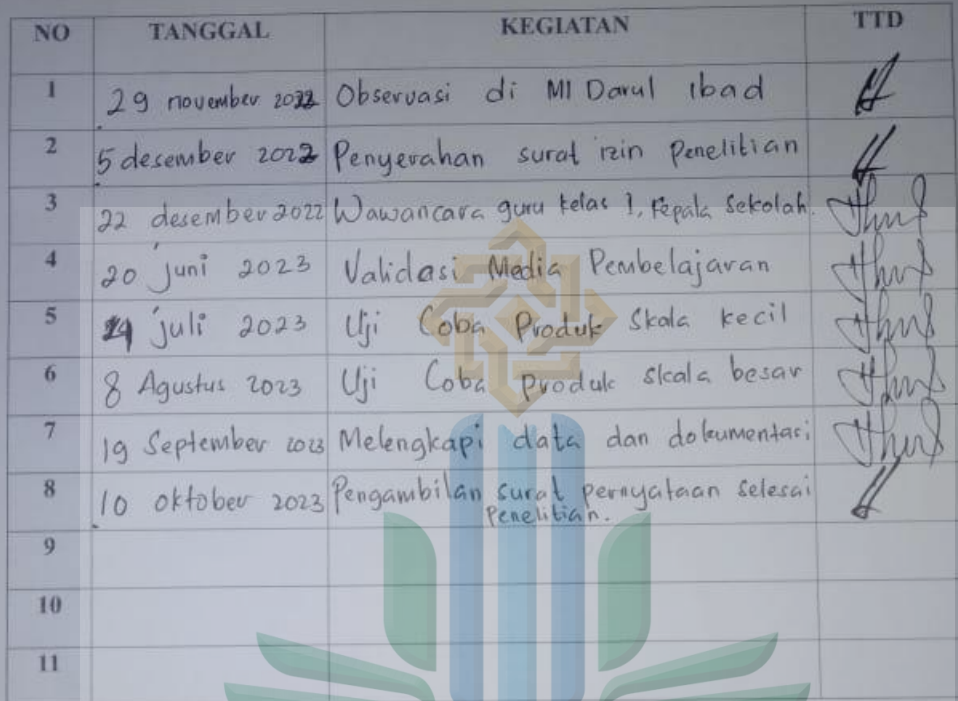 NO TANGGAL KEGIATAN TTD
1 29 november 2022 Observasi di MI Darul ibad
2 5 desember 2022 Penyerahan surat izin Penelitian
3 22 desember 2022 Wawancara guru kelas 1, kepala sekolah.
4 20 juni 2023 Validasi Media Pembelajaran
5 24 juli 2023 Uji Coba Produk Skala kecil
6 8 Agustus 2023 Uji Coba produk skala besar
7 19 September 2023 Melengkapi data dan dokumentasi
8 10 oktober 2023 Pengambilan surat pernyataan selesai
Penelitian.
9
10
11